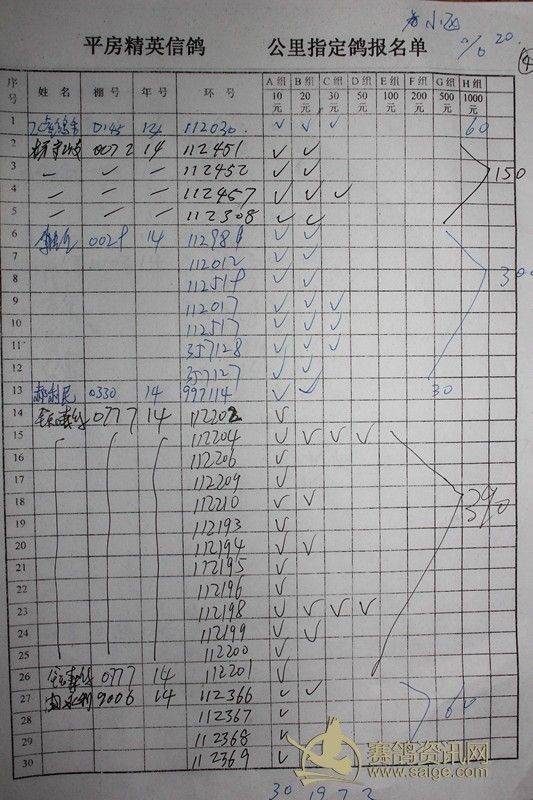 % 20.
平房精英信鸽 公里指定鸽报名单
序号 姓名 棚号 年号 环号 A组 10元 B组 20元 C组 30元 D组 50元 E组 100元 F组 200元 G组 500元 H组 1000元
1 0145 14 112030 ✓ ✓ ✓ 60
2 0072 14 112451 ✓ ✓
3 一 一 一 112452 ✓ ✓ 150
4 一 一 一 112457 ✓ ✓ ✓
5 一 一 一 112308 ✓ ✓
6 0029 14 112989 ✓ ✓
7 112012 ✓ ✓
8 112519 ✓ ✓ 300
9 112017 ✓ ✓ ✓
10 112517 ✓ ✓ ✓
11 357128 ✓ ✓ ✓
12 357127 ✓ ✓
13 郝利民 0330 14 997114 ✓ ✓ 30
14 0777 14 112202 ✓
15 112204 ✓ ✓ ✓ ✓
16 112206 ✓
17 112209 ✓
18 112210 ✓ ✓ 390
19 112193 ✓
20 112194 ✓ ✓
21 112195 ✓
22 112196 ✓
23 112198 ✓ ✓ ✓ ✓
24 112199 ✓ ✓
25 112200 ✓
26 0777 14 112201 ✓
27 9006 14 112366 ✓ ✓
28 112367 ✓ 60
29 112368 ✓
30 112369 ✓
赛鸽资讯网
www.saige.com
30 1972